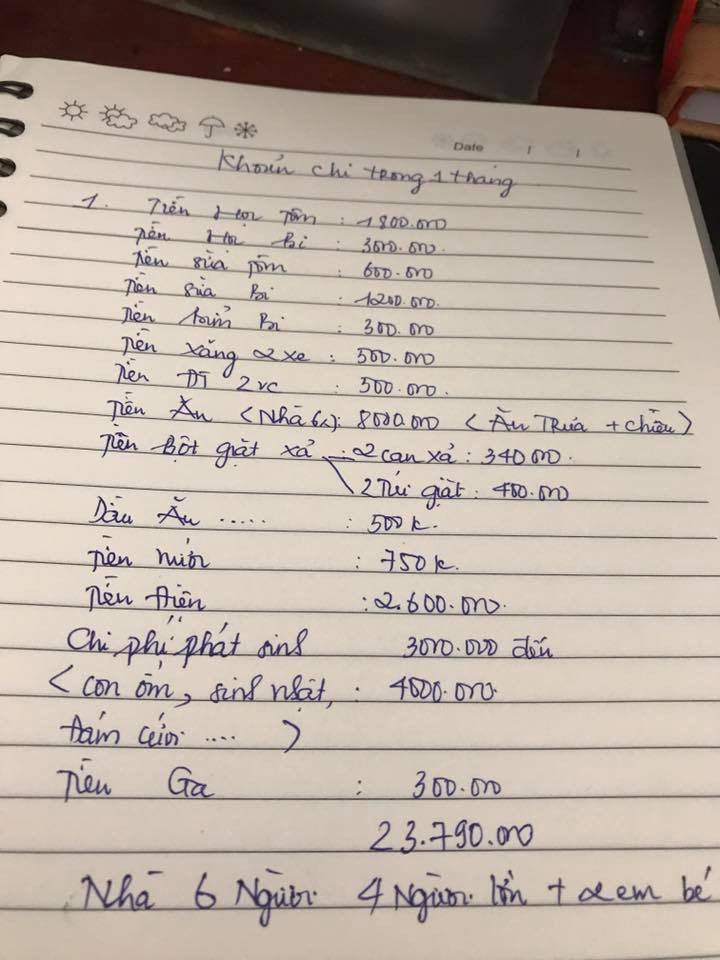 Date / /
Khoản chi trong 1 tháng
1. Tiền Tôm : 1800.000
Tiền Bi : 3000.000.
Tiền sữa Tôm : 600.000
Tiền sữa Bi : 1200.000.
Tiền bỉm Bi : 300.000
Tiền xăng 2 xe : 500.000
Tiền ĐT 2 vc : 500.000.
Tiền Ăn (Nhà 6n): 8000.000 (Ăn Trưa + chiều)
Tiền bột giặt xả : 2 can xả : 340 000.
2 Túi giặt : 400.000
Dầu Ăn ..... : 500k.
Tiền nước : 750k.
Tiền điện : 2.600.000.
Chi phí phát sinh 3000.000 đến
(con ốm, sinh nhật, : 4000.000.
đám cưới .... )
Tiền Ga : 300.000
23.790.000
Nhà 6 Người. 4 Người lớn + 2 em bé